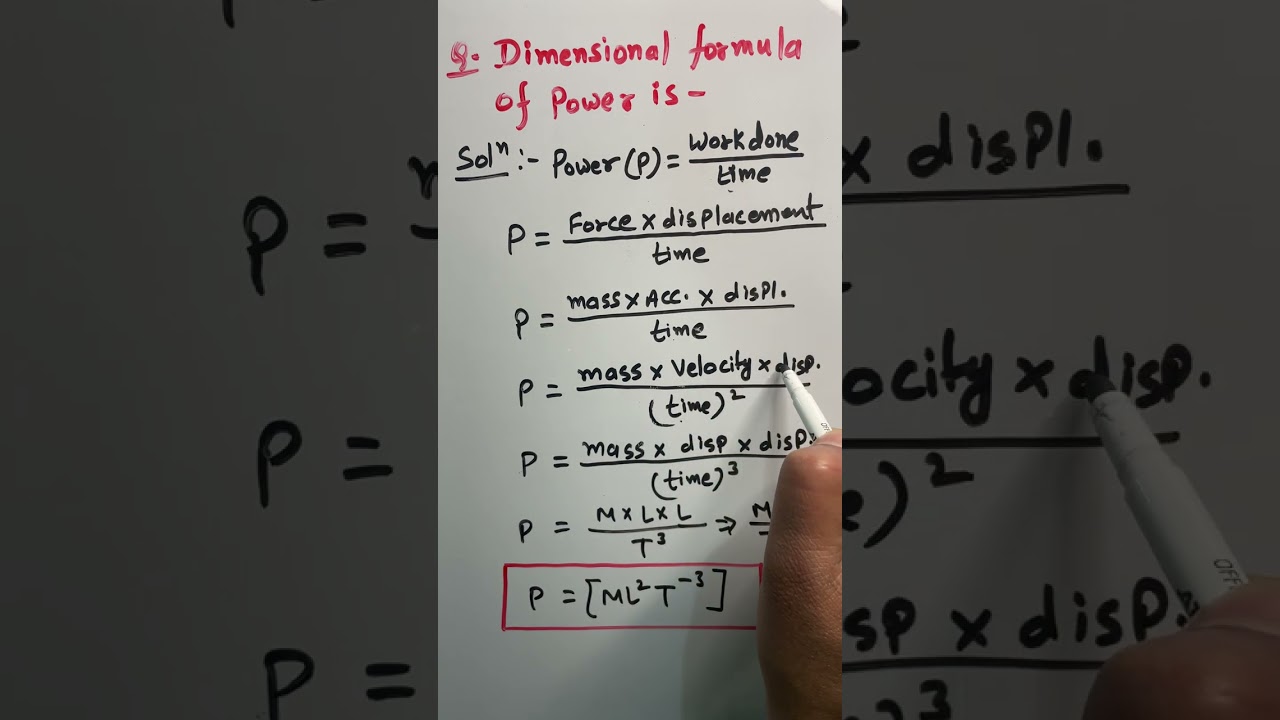 Q. Dimensional formula
of Power is -
Solⁿ :- Power (P) = Workdone / time
P = Force × displacement / time
P = mass × Acc. × displ. / time
P = mass × Velocity × disp. / (time)²
P = mass × disp × disp. / (time)³
P = M × L × L / T³ ⇒ M
P = [ML²T⁻³]